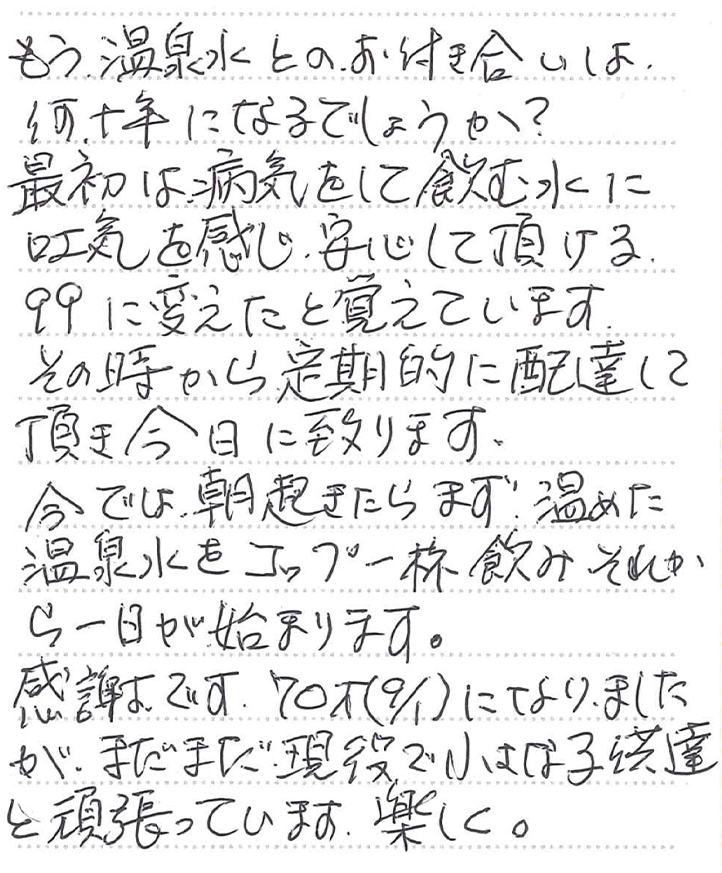 もう、温泉水とのお付き合いは、
何十年になるでしょうか？
最初は、病気をして飲む水に
吐気を感じ、安心して頂ける、
99に変えたと覚えています。
その時から、定期的に配達して
頂き今日に致ります。
今では、朝起きたらまず、温めた
温泉水をコップ一杯飲み、それか
ら一日が始まります。
感謝です。70才(9/1)になりました
が、まだまだ現役で 子供達
と頑張っています。楽しく。